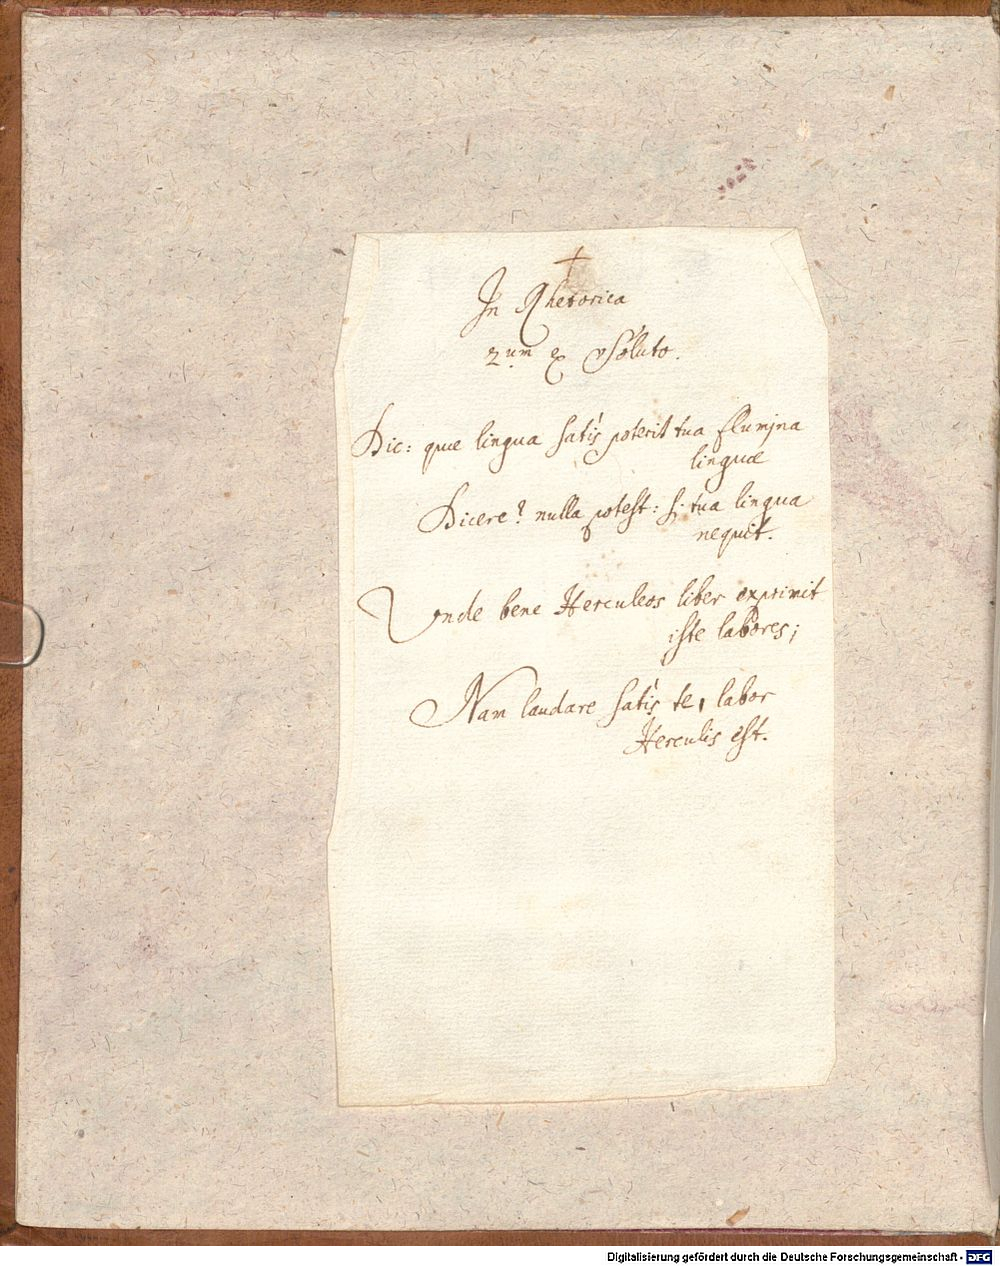 In Rhetorica
2.um ex Soluto.
Dic: quæ lingua satis poterit tua flumina
linguæ
Dicere? nulla potest: si tua lingua
nequit.
Vnde bene Herculeos liber exprimit
iste labores;
Nam laudare satis te, labor
Herculis est.
Digitalisierung gefördert durch die Deutsche Forschungsgemeinschaft - DFG